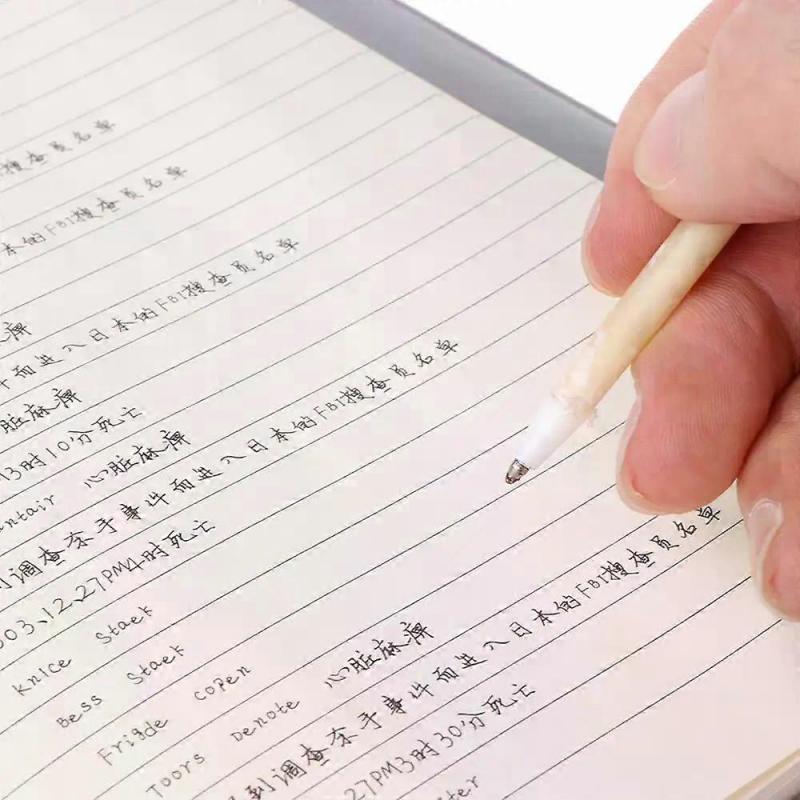 搜查员名单
本的FBI搜查员名单
麻痹
件而进入日本的FBI搜查员名单
脏麻痹
3时10分死亡
ntair 心脏麻痹
到调查杀手事件而进入日本的FBI搜查员名单
003、12、27PM4时死亡
Knice Staek
Bess Staek
Frigde copen
Toors Denote 心脏麻痹
到调查杀手事件而进入日本的FBI搜查员名单
27PM3时30分死亡
ter